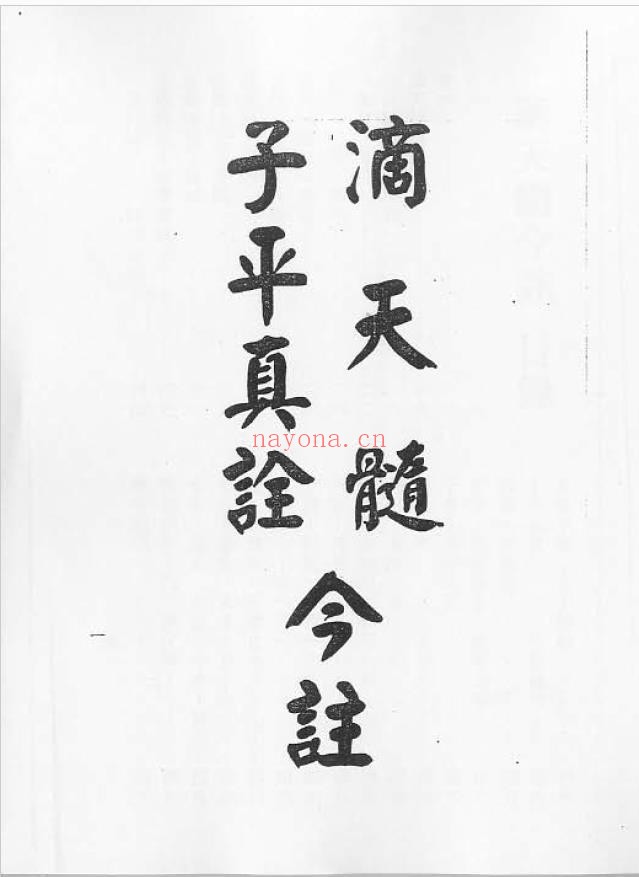 滴天髓
子平真詮
今註
nayona.cn